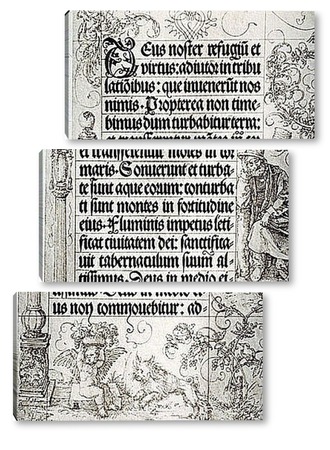 Deus noster refugiū et
virtus: adiutor in tribu
latiōibus: que inuenerūt nos
nimis. Propterea non time
bimus dum turbabitur terra:
et transferentur montes in cor
maris. Sonuerunt et turba-
te sunt aque eorum: conturba
ti sunt montes in fortitudine
eius. Fluminis impetus leti
ficat ciuitatem dei: sanctifica
uit tabernaculum suum al-
tissimus. Deus in medio ei-
us non commouebitur: ad-